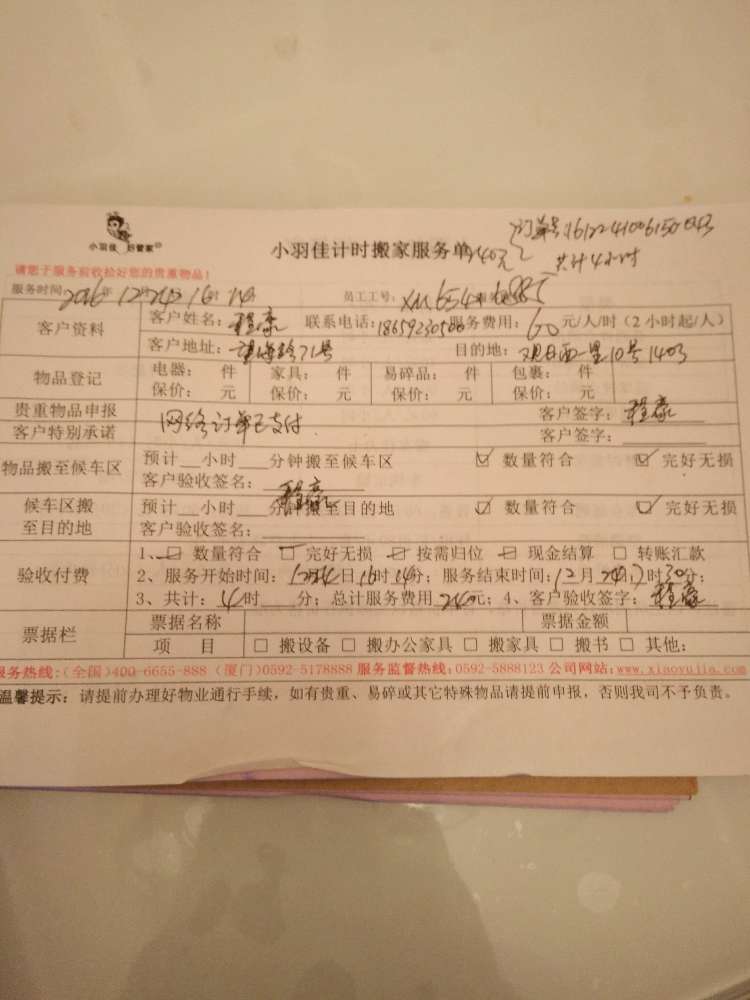 小羽佳 好管家
小羽佳计时搬家服务单
240元
订单号161224100615
共计4小时
请您于服务前收拾好您的贵重物品！
服务时间：2016年12月24日16时14分 员工工号：
客户资料
客户姓名：程豪 联系电话：18659230500 服务费用：60元/人/时（2小时起/人）
客户地址：望海路71号 目的地：观日西一里10号1403
物品登记
电器： 件 家具： 件 易碎品： 件 包裹： 件
保价： 元 保价： 元 保价： 元 保价： 元
贵重物品申报
客户签字：程豪
客户特别承诺
网络订单已支付.
客户签字：
物品搬至候车区
预计 小时 分钟搬至候车区 ☑ 数量符合 ☑ 完好无损
客户验收签名：程豪
候车区搬
至目的地
预计 小时 分钟搬至目的地 ☑ 数量符合 ☑ 完好无损
客户验收签名：
验收付费
1、☑ 数量符合 ☑ 完好无损 ☑ 按需归位 ☑ 现金结算 □ 转账汇款
2、服务开始时间：12月24日16时14分；服务结束时间：12月24日17时30分；
3、共计：4时 分；总计服务费用240元；4、客户验收签字：程豪
票据栏
票据名称 票据金额
项 目 □ 搬设备 □ 搬办公家具 □ 搬家具 □ 搬书 □ 其他：
服务热线：（全国）400-6655-888（厦门）0592-5178888 服务监督热线：0592-5888123 公司网站：www.xiaoyujia.com
温馨提示：请提前办理好物业通行手续，如有贵重、易碎或其它特殊物品请提前申报，否则我司不予负责。